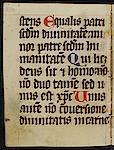 stens Equalis patri
scđm diuinitatē mi
nor patre scđm hu
manitatē Qui licꝫ
deus sit ⁊ homo nō
duo tamē sed u
nus est xp̄c Unus
autē nō cōuersione
diuinitatis in carnē